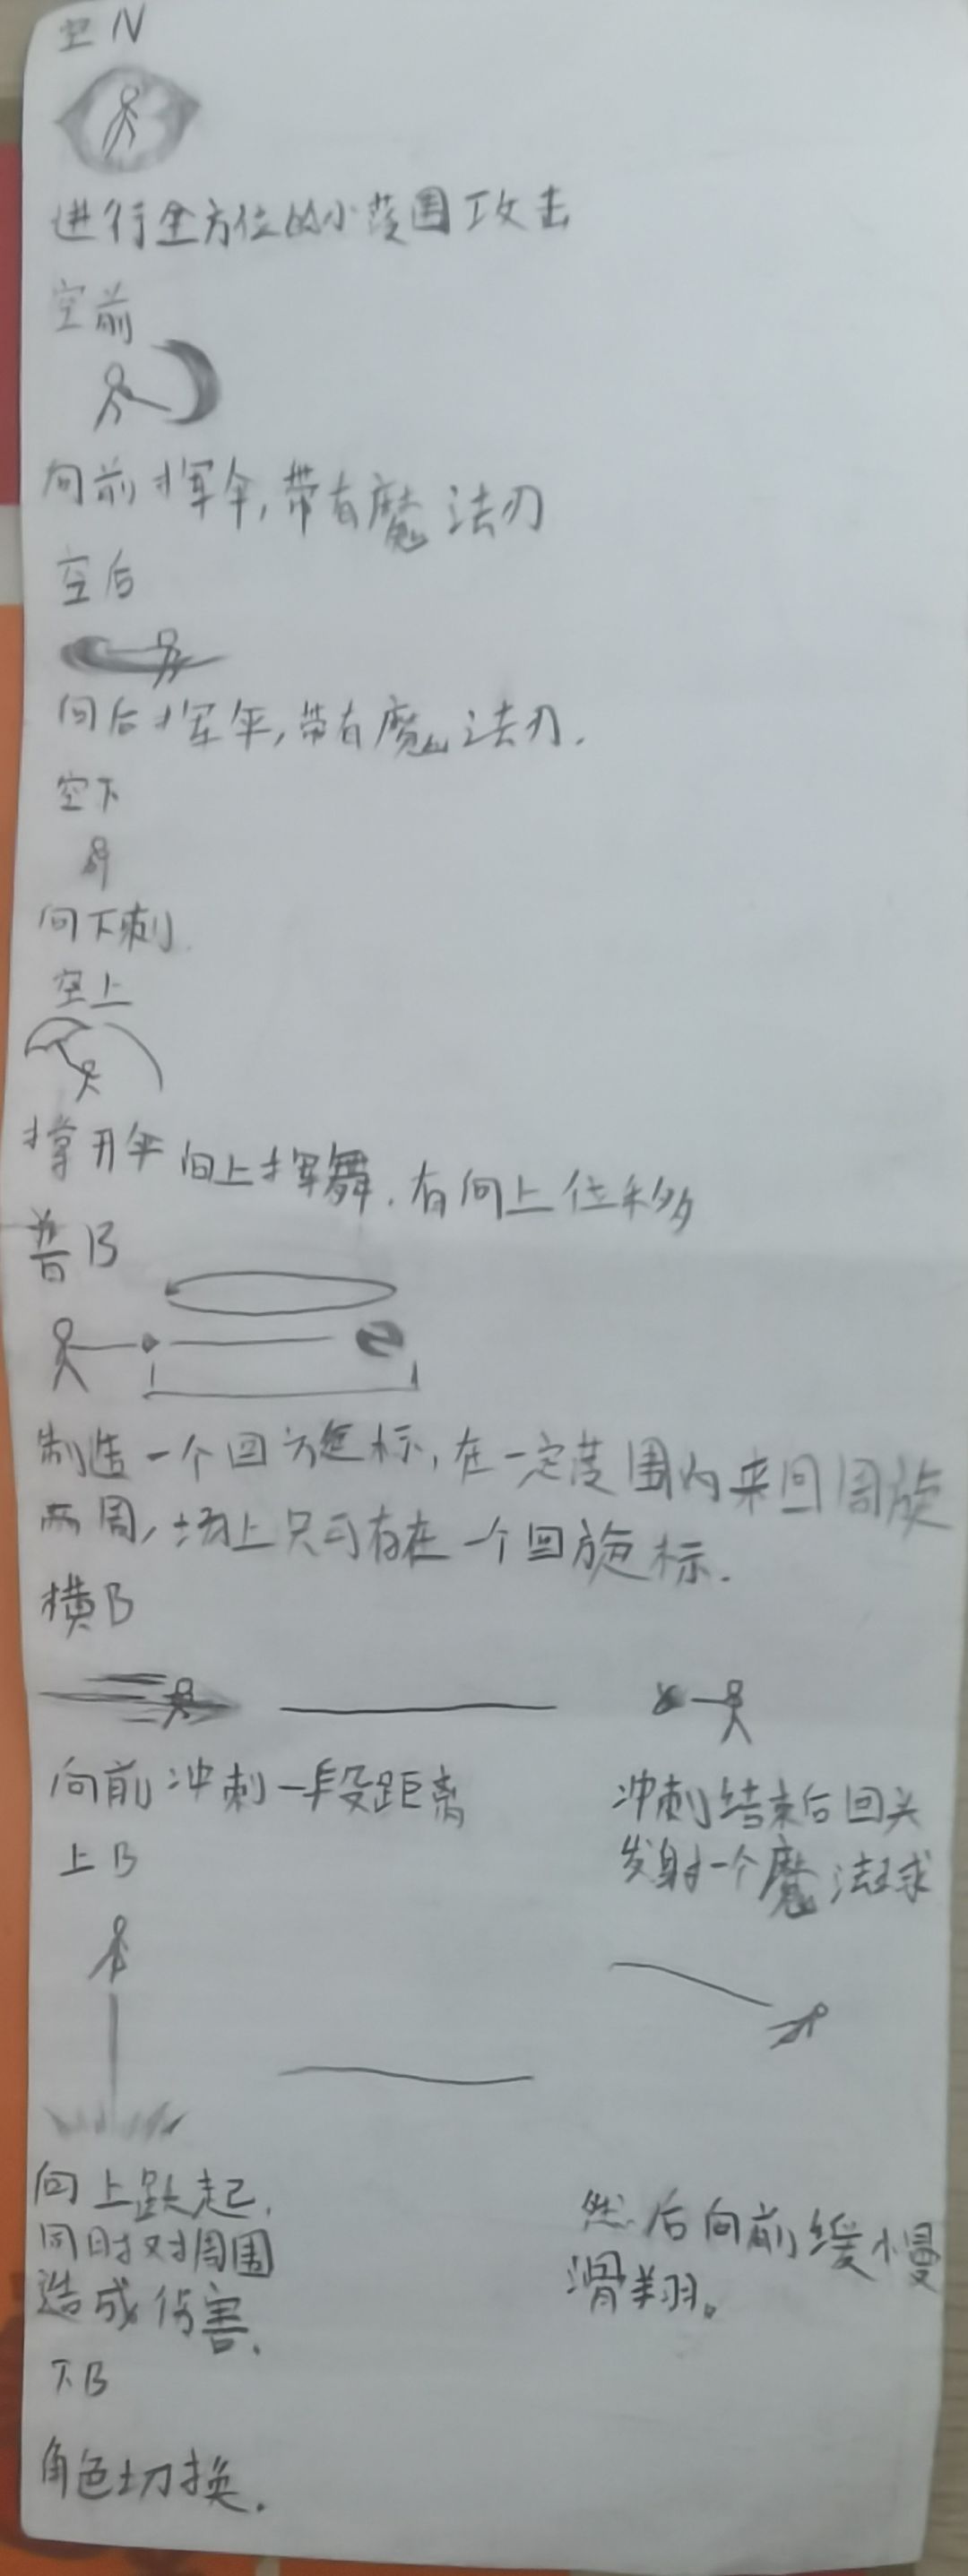 空N
进行全方位的小范围攻击
空前
向前挥伞,带有魔法刃
空后
向后挥伞,带有魔法刃.
空下
向下刺.
空上
撑开伞向上挥舞.有向上位移
普B
制造一个回旋标,在一定范围内来回周旋
两周,场上只可存在一个回旋标.
横B
向前冲刺一段距离
冲刺结束后回头
发射一个魔法球
上B
向上跃起,
同时对周围
造成伤害.
然后向前缓慢
滑翔。
下B
角色切换.